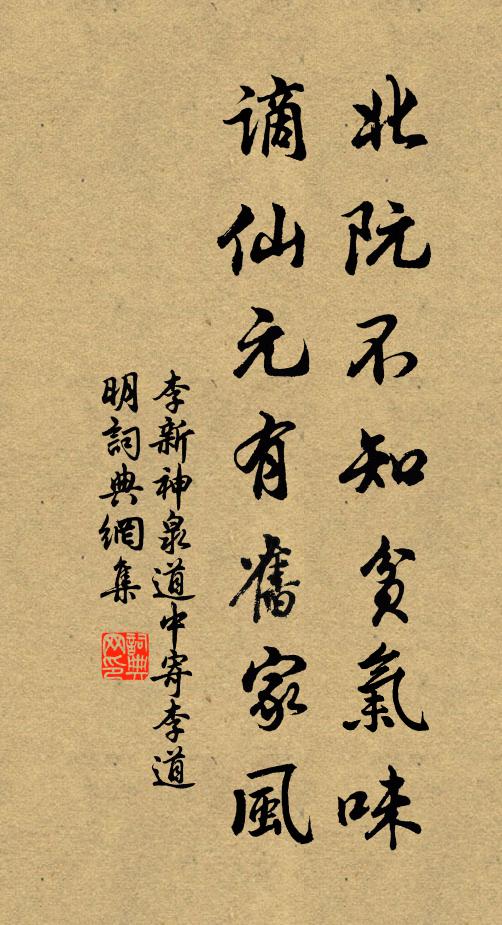 北阮不知貧氣味
謫仙元有舊家風
李新神泉道中寄李道
明詞典網集
詞典网印